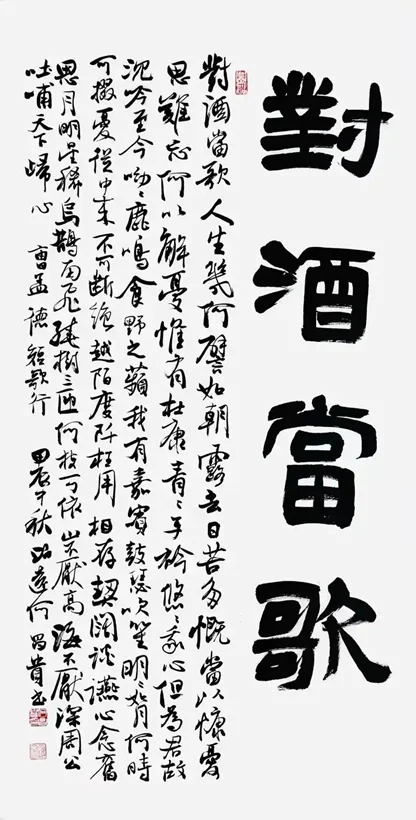 對酒當歌
對酒當歌人生幾何譬如朝露去日苦多慨當以慷憂
思難忘何以解憂惟有杜康青〻子衿悠〻我心但為君故
沈吟至今呦〻鹿鳴食野之蘋我有嘉賓鼓瑟吹笙明〻如月何時
可掇憂從中來不可斷絕越陌度阡枉用相存契闊談讌心念舊
恩月明星稀烏鵲南飛繞樹三匝何枝可依山不厭高海不厭深周公
吐哺天下歸心 曹孟德短歌行 甲辰中秋 何昌貴書